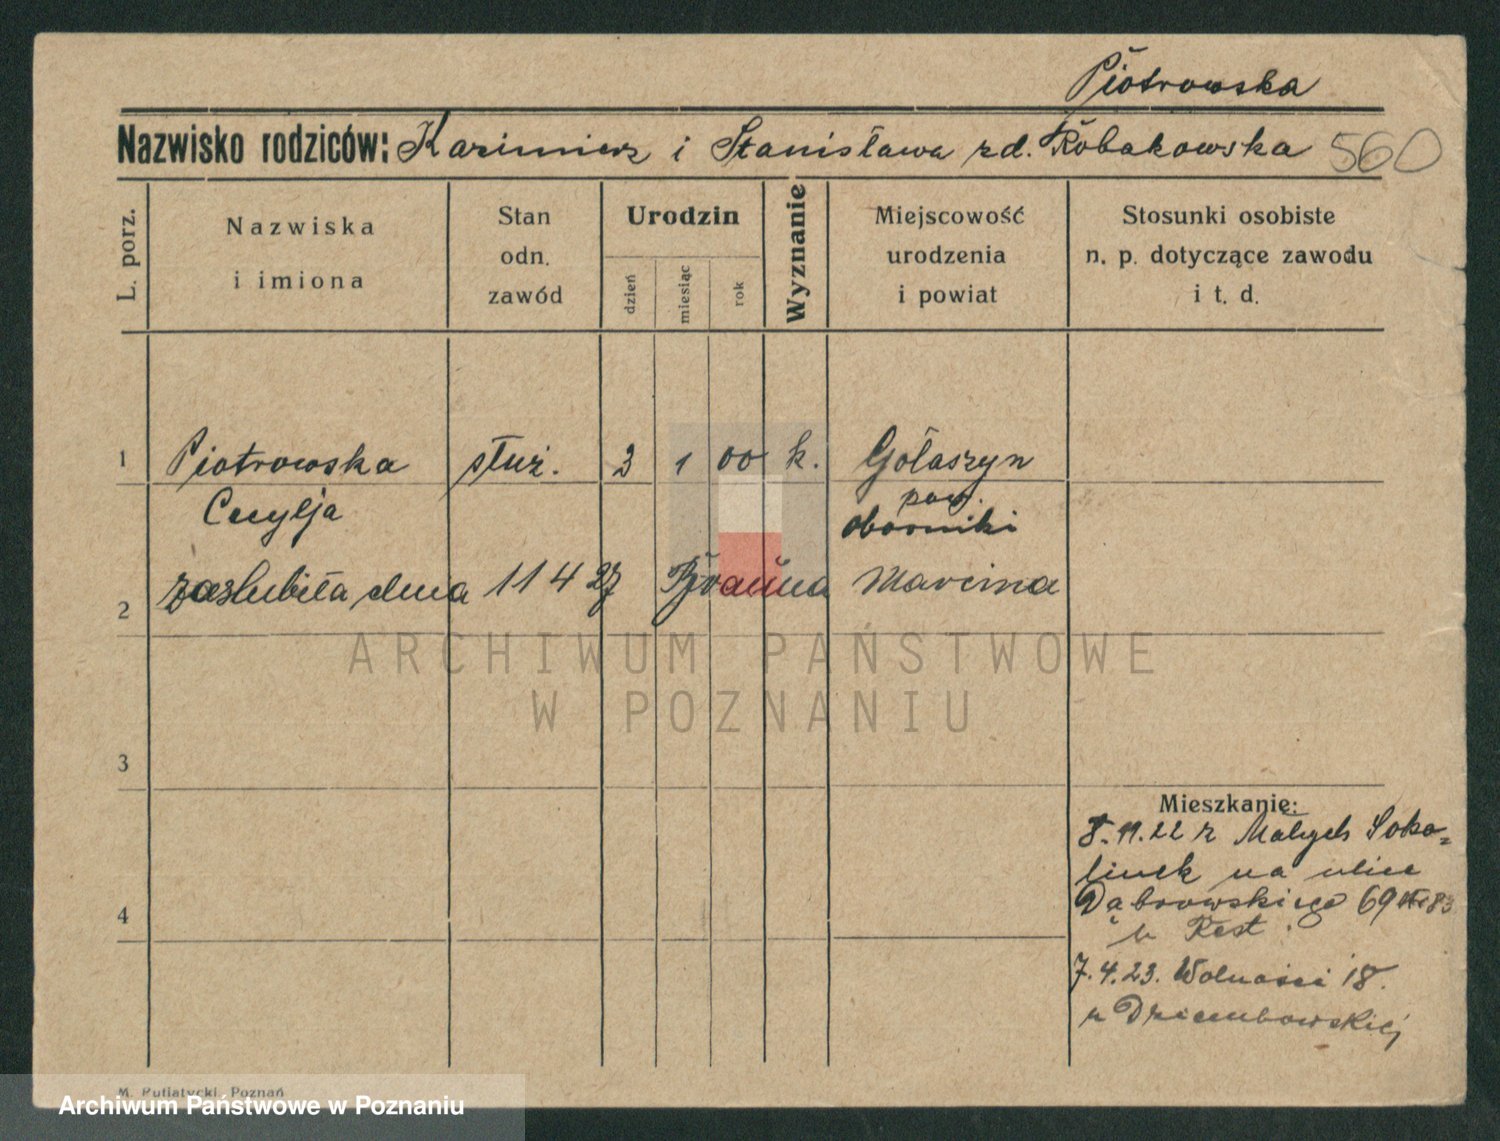 Piotrowska
Nazwisko rodziców: Kazimierz i Stanisława zd. Robakowska 560
L. porz.
Nazwiska i imiona
Stan odn. zawód
Urodzin
dzień
miesiąc
rok
Wyznanie
Miejscowość urodzenia i powiat
Stosunki osobiste n. p. dotyczące zawodu i t. d.
1 Piotrowska służ. 3 1 00 k. Gołaszyn
Cecylja pow.
oborniki
2 zaślubiła dnia 11 4 27 Marcina
3
4
Mieszkanie:
8.11.22 z Małych Soko-
linek na ulice
Dąbrowskiego 69
u Rest.
7.4.23. Wolności 18.
u Dziembowskiej
M. Putiatycki, Poznań
ARCHIWUM PAŃSTWOWE
W POZNANIU
Archiwum Państwowe w Poznaniu